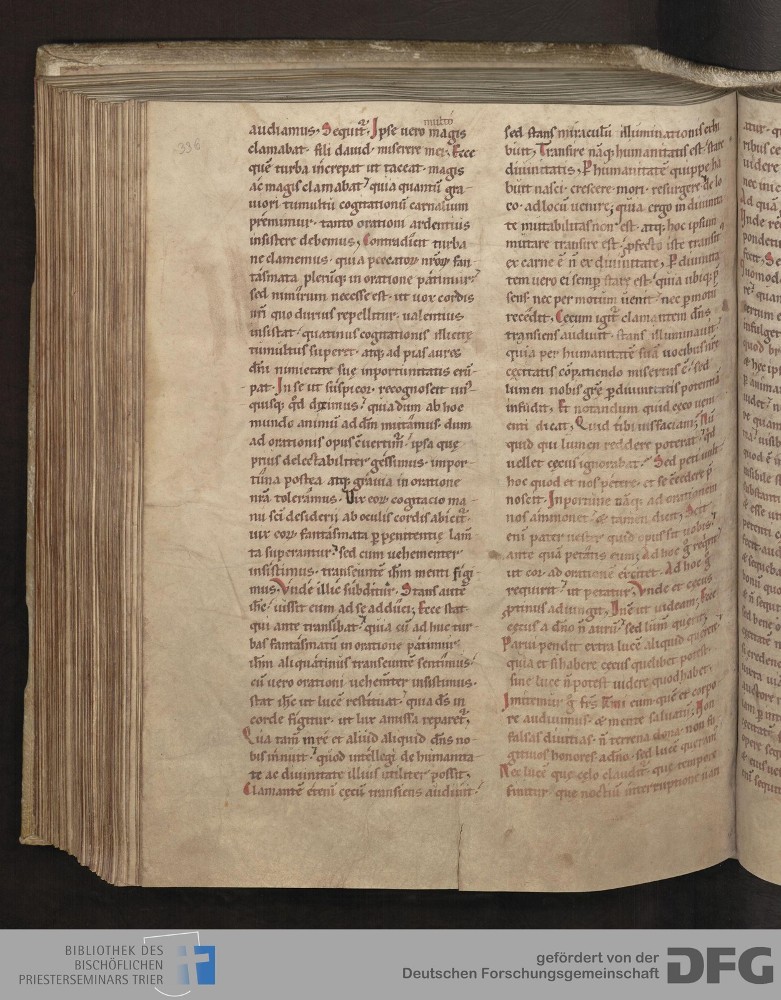 336
multo
audiamus. Sequit᷑. Ipse uero magis
clamabat. fili dauid. miserere mei. Ecce
quē turba increpat ut taceat. magis
ac magis clamabat. quia quantū gra-
uiori tumultu cogitationū carnalium
premimur. tanto orationi ardentius
insistere debemus. Contradicit turba
ne clamemus. quia peccatoꝝ nr̄oꝝ fan-
tasmata plerūq; in oratione patimur.
sed nimirum necesse est. ut uox cordis
nr̄i quo durius repellitur. ualentius
insistat. quatinus cogitationis illicite
tumultus superet. atq; ad pias aures
dn̄i nimietate suę inportunitatis erū-
pat. In se ut suspicor. recognoscit un⁹-
quisq; qd̄ dicimus. quia dum ab hoc
mundo animū ad dm̄ mutamus. dum
ad orationis opus cuertim̄. ipsa quę
prius delectabiliter gessimus. impor-
tuna postea atq; grauia in oratione
nr̄a toleramus. Vix eoꝝ cogitacio ma-
nu sc̄i desiderii ab oculis cordis abicit᷑.
uix eoꝝ fantasmata p̱ penitentię lam̄-
ta superantur. sed cum uehementer
insistimus. transeuntē ih̄m menti figi-
mus. Vnde illic subditur. Stans autē
ih̄c. iussit eum ad se adduci. Ecce stat
qui ante transibat. quia cū adhuc tur-
bas fantasmatū in oratione patimur.
ih̄m aliquatinus transeuntē sentimus.
cū uero orationi uehem̄ter insistimus.
stat ih̄c ut lucē restituat. quia d̄s in
corde figitur. ut lux amissa reparet᷑.
Qua tam̄ in re et aliud aliquid dn̄s no-
bis innuit. quod intellegi de humanita-
te ac diuinitate illius utiliter possit.
Clamantē etenī cęcū transiens audiuit.
sed stans miraculū illuminationis exhi
buit. Transire nāq; humanitatis est. stare
diuinitatis. P̱ humanitatē quippe ha
buit nasci. crescere. mori. resurgere. de lo
co. ad locū uenire. quia ergo in diuinita
te mutabilitas non est. atq; hoc ipsum
mutare transire est. p̱fecto iste transit᷑
ex carne ē. n̄ ex diuinitate. P̱ diuinita
tem uero ei semp̱ stare est. quia ubiq; p̱
sens. nec per motum uenit. nec p̱ motū
recedit. Cęcum igit᷑ clamantem dn̄s
transiens audiuit. stans illuminauit.
quia per humanitatē suā uocibus nr̄e
cęcitatis cōpatiendo misertus ē. sed
lumen nobis grę̄ p̱ diuinitatis potentiā
infudit. Et notandum quid cęco ueni
enti dicat. Quid tibi uis faciam. Nū
quid qui lumen reddere poterat. qd̄
uellet cęcus ignorabat. Sed peti uult
hoc quod et nos petere. et se c̄cedere p̱
noscit. Inportune nāq; ad orationem
nos ammonet. & tamen dicit. Scit
enī pater uester quid opus sit uobis.
ante quā petatis eum. Ad hoc g̊ reqrit᷑
ut cor ad orationē excitet. Ad hoc g̊
requirit. ut petatur. Vnde et cęcus
p̱tinus adiungit. Dn̄e ut uideam. Ecce
cęcus a dn̄o n̄ aurū. sed lum̄ querit.
Parui pendit extra lucē aliquid querere.
quia etsi habere cęcus quelibet potest.
sine luce n̄ potest uidere quod habet.
Imitemur g̊ frs̄ kmi eum. quē et corpo
re audiuimus. & mente saluatū. Non
falsas diuitias. n̄ terrena dona. non fu
gitiuos honores a dn̄o. sed lucē queram᷑.
Nec lucē que cęlo claudit᷑. que tempore
finitur. que noctiū interruptione uari
BIBLIOTHEK DES
BISCHÖFLICHEN
PRIESTERSEMINARS TRIER
gefördert von der
Deutschen Forschungsgemeinschaft
DFG